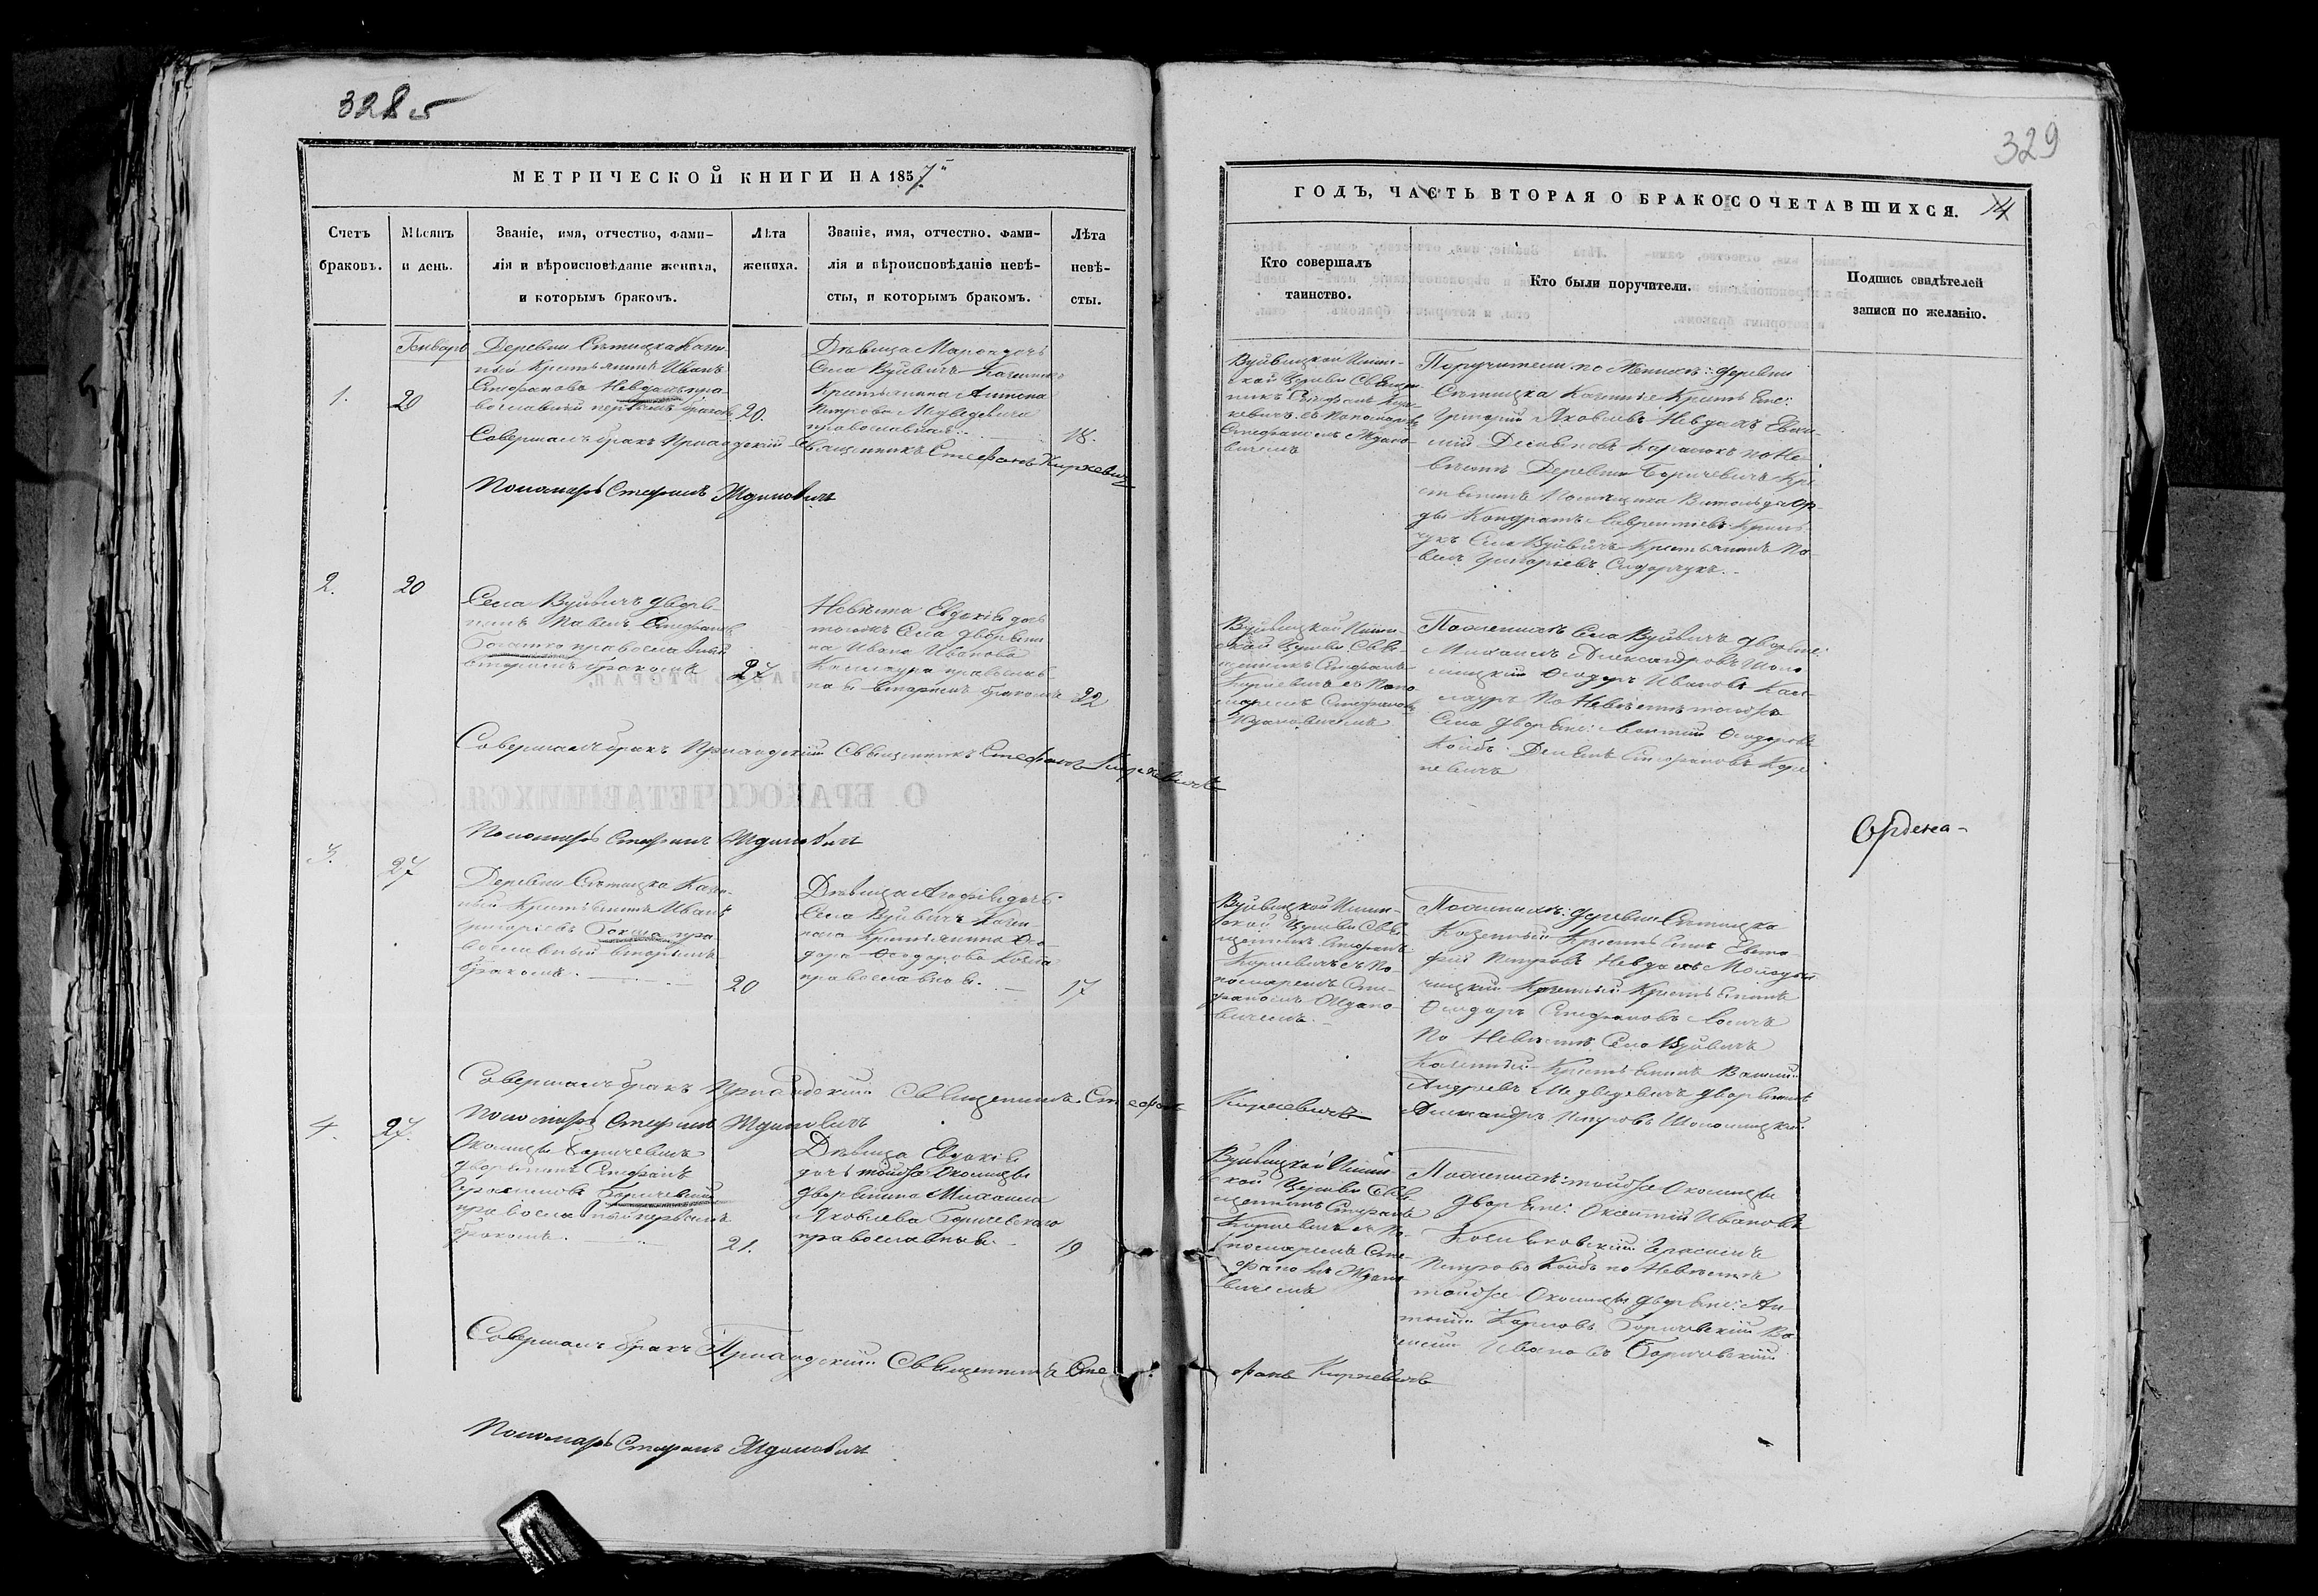 328 об
МЕТРИЧЕСКОЙ КНИГИ НА 1857
Счетъ браковъ.
Мѣсяцъ и день.
Званіе, имя, отчество, фами-
лія и вѣроисповѣданіе жениха,
и которымъ бракомъ.
Лѣта жениха.
Званіе, имя, отчество. фами-
лія и вѣроисповѣданіе невѣ-
сты, и которымъ бракомъ.
Лѣта невѣ-
сты.
1.
Генваря
20
Деревни Ситницка Казен-
ный Крестьянинъ Иванъ
Стефановъ Невдахъ пра-
вославный первымъ бракомъ
20.
Дѣвица Марія дочь
Села Вуйвичъ Казеннаго
Крестьянина
Петрова Медведевича
православная
18.
Совершалъ бракъ Приходскій Священникъ Стефанъ Киркевичъ
Пономарь Стефанъ Ждановичъ
2.
20
Села Вуйвичъ дворя-
нинъ Павелъ Стефановъ
православный
вторымъ бракомъ
27
Невѣста Евдокія дочь
тогожъ Села дворяни-
на Ивана Иванова
Коллаура православ-
ная вторымъ бракомъ
22
Совершалъ бракъ Приходскій Священникъ Стефанъ Киркевичъ
Пономарь Стефанъ Ждановичъ
3.
27
Деревни Ситницка Казен-
ный Крестьянинъ Иванъ
Григоріевъ пра-
вославный вторымъ
бракомъ.
20
Дѣвица Агафія дочь
Села Вуйвичъ Казен-
наго Крестьянина Ѳео-
дора Ѳеодорова
православная.
17
Совершалъ бракъ Приходскій Священникъ Стефанъ Киркевичъ
Пономарь Стефанъ Ждановичъ
4.
27.
Околицы Боричевичъ
дворянинъ Стефанъ
Герасимовъ Боричевскій
православный первымъ
бракомъ.
21.
Дѣвица Евдокія
дочь тойже Околицы
дворянина Михаила
Яковлева Боричевскаго
православная
19
Совершалъ бракъ Приходскій Священникъ Стефанъ Киркевичъ
Пономарь Стефанъ Ждановичъ
329
ГОДЪ, ЧАСТЬ ВТОРАЯ О БРАКОСОЧЕТАВШИХСЯ.
14
Кто совершалъ
таинство.
Кто были поручители.
Подпись свидѣтелей
записи по желанію.
Вуйвицкой
ской Церкви Священ-
никъ Стефанъ Кир-
кевичъ съ Пономаремъ
Стефаномъ Ждано-
вичемъ
Поручители по Женихѣ: деревни
Ситницка Казенные Крестьяне:
Григорій Яковлевъ Невдахъ
по Не-
вѣстѣ Деревни Боричевичъ Кре-
стьянинъ Помѣщика Витольда Ор-
ды Кондратъ Лаврентіевъ
Села Вуйвичъ Крестьянинъ Па-
велъ Григоріевъ Сидорчукъ.
Вуйвицкой
ской Церкви Свя-
щенникъ Стефанъ
Киркевичъ съ Поно-
маремъ Стефаномъ
Ждановичемъ
По женихѣ Села Вуйвичъ дворяне:
Михаилъ Александровъ Шоло-
мицкій Ѳеодоръ Иванов Кол-
лауръ По Невѣстѣ тогоже
Села дворяне: Ѳеодоровъ
Койбъ Стефановъ
Вуйвицкой
ской Церкви Свя-
щенникъ Стефанъ
Киркевичъ съ По-
номаремъ Сте-
фаномъ Ждано-
вичемъ.
По женихѣ: деревни Ситницка
Казенный Крестьянинъ Евста-
фій Петровъ Невдахъ
Казенный Крестьянинъ
Ѳеодоръ Стефановъ
По Невѣстѣ Села Вуйвичъ
Казенный Крестьянинъ Василій
Андреевъ Медведевичъ дворянинъ
Александръ Петровъ Шоломицкій.
Вуйвицкой
ской Церкви Свя-
щенникъ Стефанъ
Киркевичъ съ По-
номаремъ Сте-
фаномъ Ждано-
вичемъ
По женихѣ: тойже Околицы
дворяне: Ивановъ
Герасимъ
Петровъ Койбъ по Невѣстѣ
тойже Околицы дворяне: Ан-
тоній Карповъ Боричевскій Ва-
силій Ивановъ Боричевскій